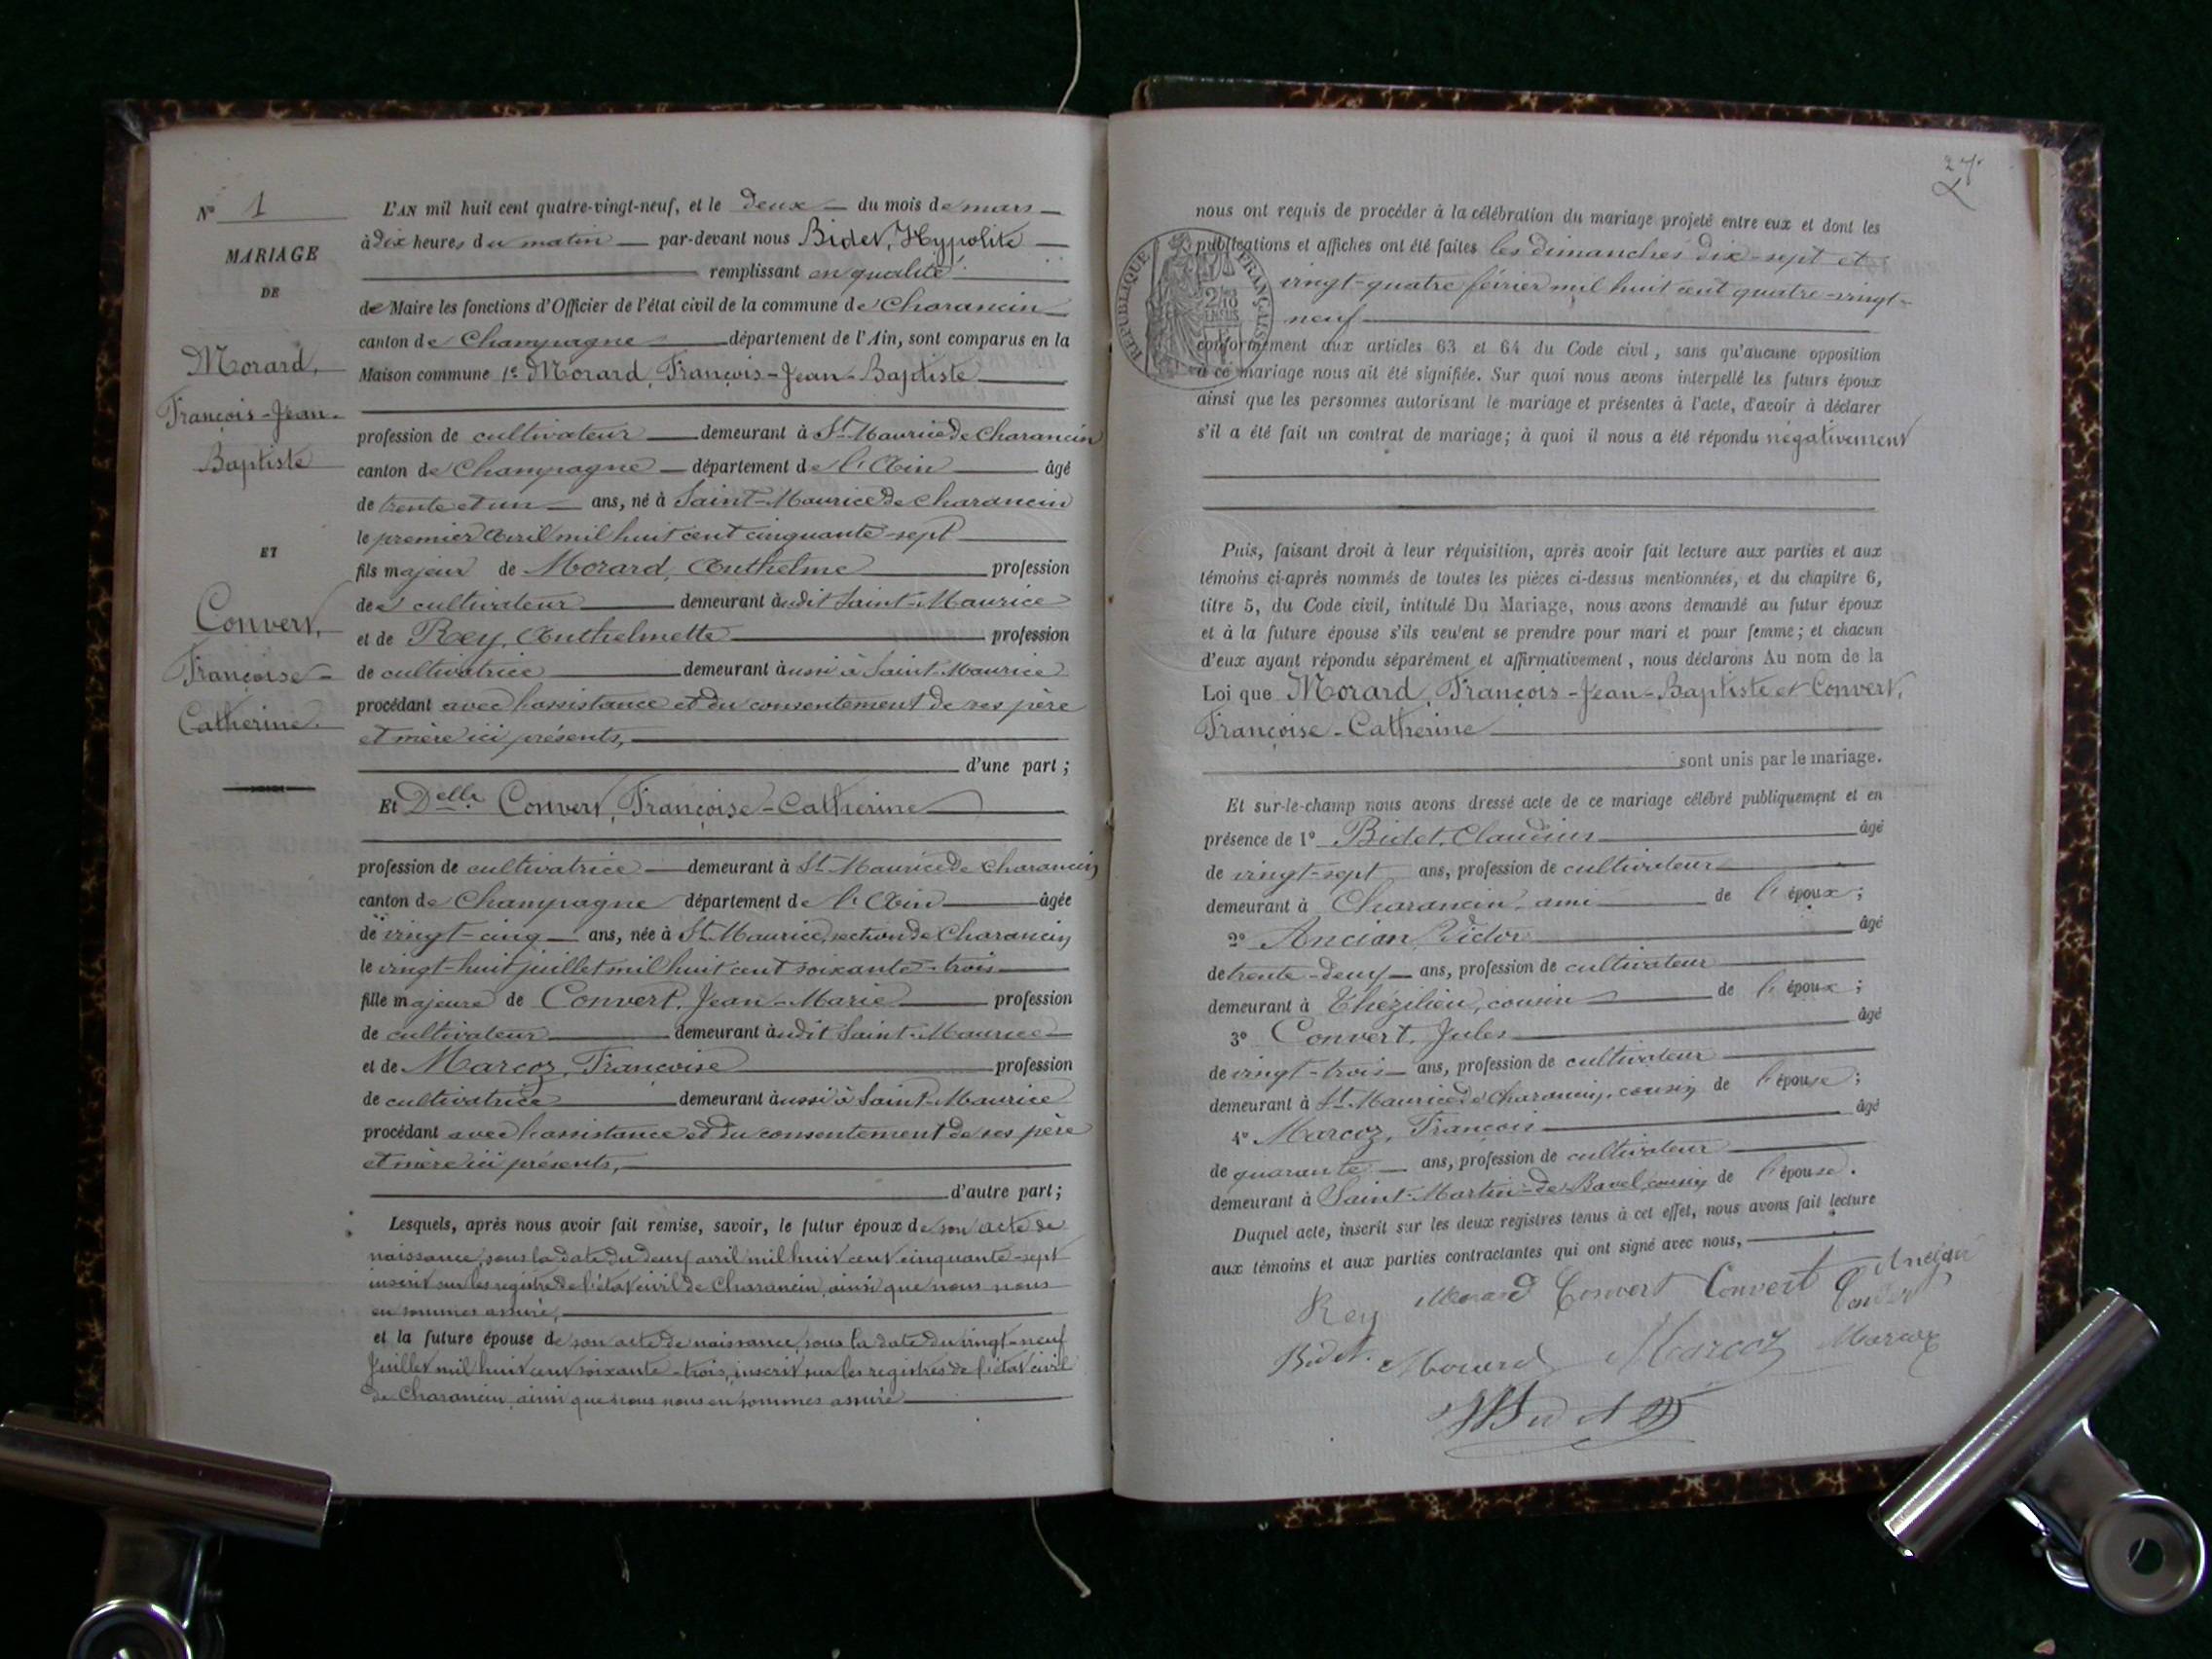 N° 1
MARIAGE
DE
Morard,
François-Jean-
Baptiste
ET
Convert,
Françoise-
Catherine.
L'AN mil huit cent quatre-vingt-neuf, et le deux du mois de mars
à dix heures du matin par-devant nous Bidet, Hypolite
remplissant en qualité
de Maire les fonctions d'Officier de l'état civil de la commune de Charancin
canton de Champagne département de l'Ain, sont comparus en la
Maison commune 1° Morard, François-Jean-Baptiste
profession de cultivateur demeurant à St Maurice de Charancin
canton de Champagne département de l'Ain âgé
de trente et un ans, né à Saint-Maurice de Charancin
le premier Avril mil huit cent cinquante-sept
fils majeur de Morard, Anthelme profession
de cultivateur demeurant audit Saint-Maurice
et de Rey, Anthelmette profession
de cultivatrice demeurant aussi à Saint-Maurice
procédant avec l'assistance et du consentement de ses père
et mère ici présents,
d'une part ;
Et Delle Convert, Françoise-Catherine
profession de cultivatrice demeurant à St Maurice de Charancin
canton de Champagne département de l'Ain âgée
de vingt-cinq ans, née à St Maurice, section de Charancin
le vingt-huit juillet mil huit cent soixante-trois
fille majeure de Convert, Jean-Marie profession
de cultivateur demeurant audit Saint-Maurice
et de Marcoz, Françoise profession
de cultivatrice demeurant aussi à Saint-Maurice
procédant avec l'assistance et du consentement de ses père
et mère ici présents,
d'autre part ;
Lesquels, après nous avoir fait remise, savoir, le futur époux de son acte de
naissance, sous la date du deux avril mil huit cent cinquante-sept
inscrit sur les registre de l'état civil de Charancin, ainsi que nous nous
en sommes assuré,
et la future épouse de son acte de naissance, sous la date du vingt-neuf
Juillet mil huit cent soixante-trois, inscrit sur les registres de l'état civil
de Charancin, ainsi que nous nous en sommes assuré
27
nous ont requis de procéder à la célébration du mariage projeté entre eux et dont les
publications et affiches ont été faites les dimanches dix-sept et
vingt-quatre février mil huit cent quatre-vingt-
neuf
RÉPUBLIQUE FRANÇAISE
conformément aux articles 63 et 64 du Code civil, sans qu'aucune opposition
à ce mariage nous ait été signifiée. Sur quoi nous avons interpellé les futurs époux
ainsi que les personnes autorisant le mariage et présentes à l'acte, d'avoir à déclarer
s'il a été fait un contrat de mariage ; à quoi il nous a été répondu négativement
Puis, faisant droit à leur réquisition, après avoir fait lecture aux parties et aux
témoins ci-après nommés de toutes les pièces ci-dessus mentionnées, et du chapitre 6,
titre 5, du Code civil, intitulé Du Mariage, nous avons demandé au futur époux
et à la future épouse s'ils veulent se prendre pour mari et pour femme ; et chacun
d'eux ayant répondu séparément et affirmativement, nous déclarons Au nom de la
Loi que Morard, François-Jean-Baptiste et Convert,
Françoise-Catherine
sont unis par le mariage.
Et sur-le-champ nous avons dressé acte de ce mariage célébré publiquement et en
présence de 1° Bidet, Claudius âgé
de vingt-sept ans, profession de cultivateur
demeurant à Charancin, ami de l'époux ;
2° Ancian, Victor âgé
de trente-deux ans, profession de cultivateur
demeurant à Thézilieu, cousin de l'époux ;
3° Convert, Jules âgé
de vingt-trois ans, profession de cultivateur
demeurant à St Maurice de Charancin, cousin de l'épouse ;
4° Marcoz, François âgé
de quarante ans, profession de cultivateur
demeurant à Saint-Martin-de-Bavel, cousin de l'épouse.
Duquel acte, inscrit sur les deux registres tenus à cet effet, nous avons fait lecture
aux témoins et aux parties contractantes qui ont signé avec nous,
Rey Morard Convert Convert Ancian
Bidet. Morard Marcoz Marcoz